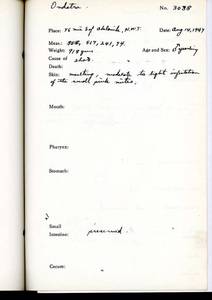 Ondatra No. 3038
Place: 75 mi S of Aklavik, N.W.T. Date: Aug 14, 1947
Meas:
Weight: 918 gms Age and Sex:
Cause of
Death: shot
Skin: moulting, moderate to light infestation
of the small pink mites.
Mouth:
Pharynx:
Stomach:
Small
Intestine: preserved
Cecum: